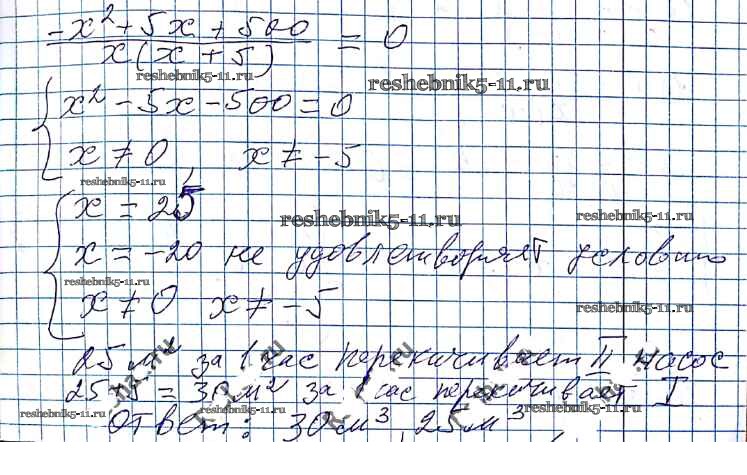 -x² + 5x + 500
x(x + 5) = 0
reshebnik5-11.ru
reshebnik5-11.ru
x² - 5x - 500 = 0
x ≠ 0, x ≠ -5
reshebnik5-11.ru
x = 25
reshebnik5-11.ru
reshebnik5-11.ru
x = -20 не удовлетворяет условию
reshebnik5-11.ru
x ≠ 0 x ≠ -5
reshebnik5-11.ru
25 м³ за 1 час перекачивает II насос
25+5 = 30 м² за 1 час перекачивает I
reshebnik5-11.ru
reshebnik5-11.ru
reshebnik5-11.ru
Ответ: 30м³, 25м³,